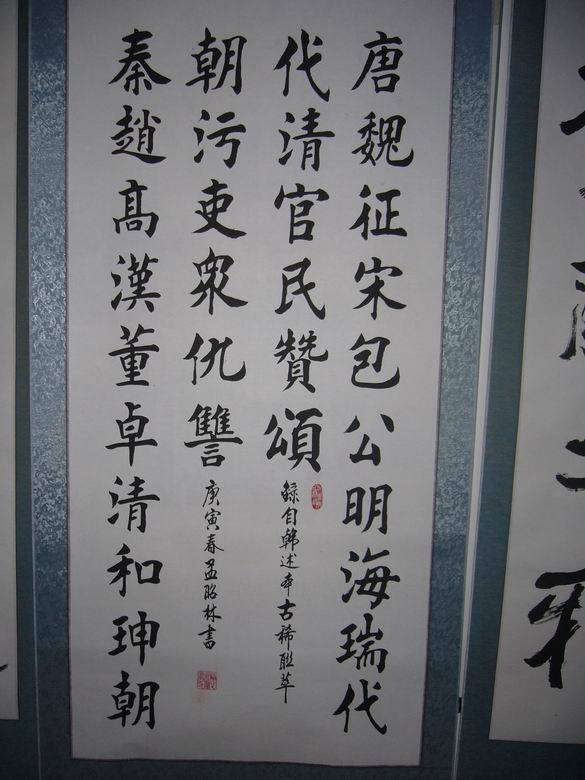 唐魏征宋包公明海瑞代
代清官民贊頌
錄自韓述本古稀聯萃
秦趙髙漢董卓清和珅朝
朝污吏衆仇讐
庚寅春孟昭林書